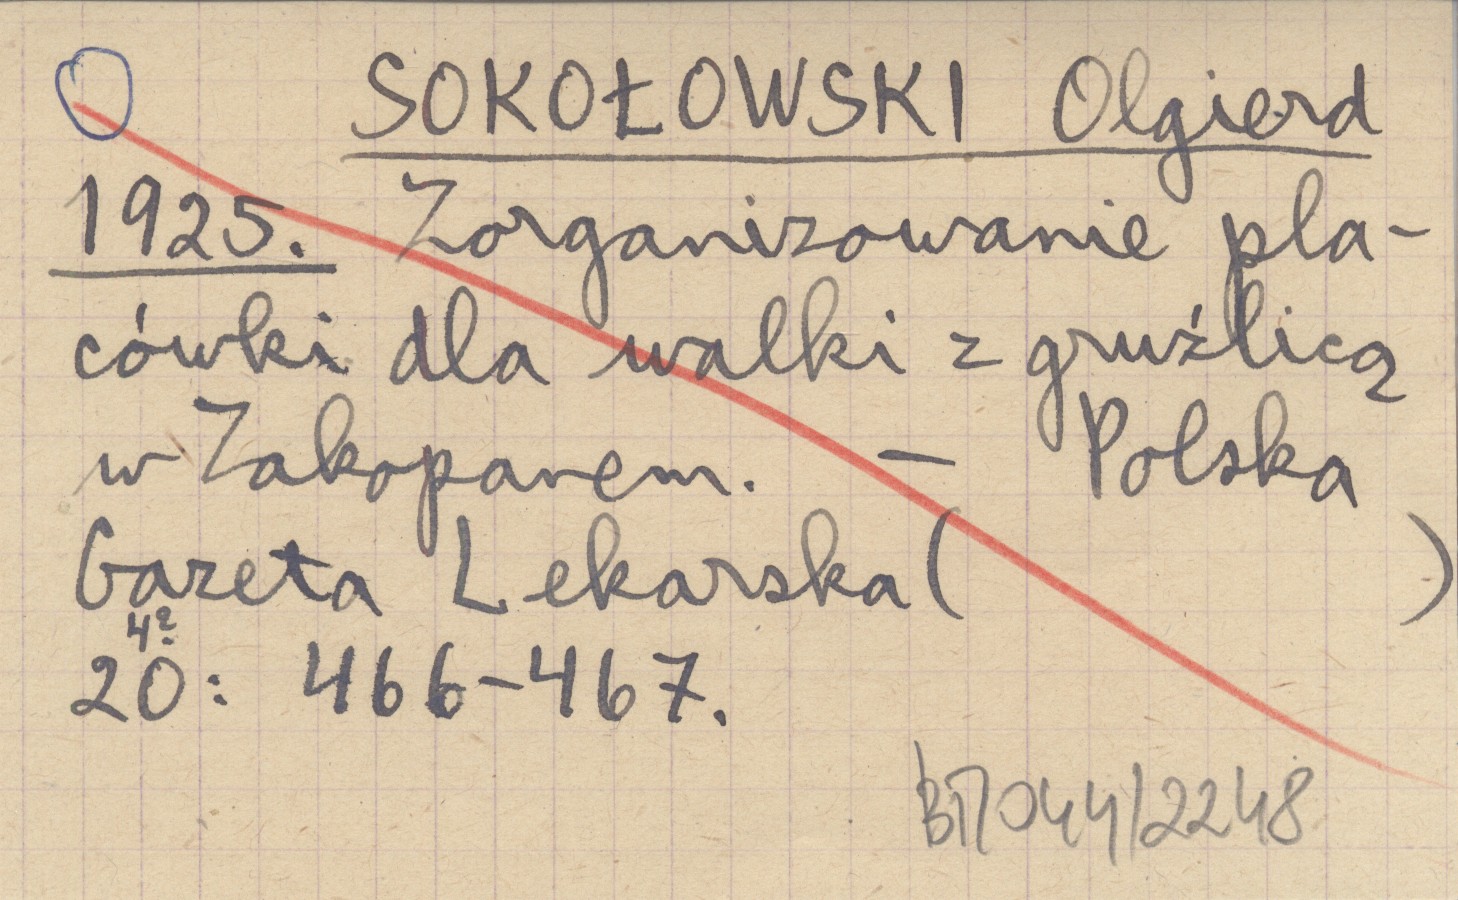 SOKOŁOWSKI Olgierd
1925. Zorganizowanie pla-
cówki dla walki z gruźlicą
w Zakopanem. — Polska
Gazeta Lekarska ( )
4º
20: 466-467.
044/2248